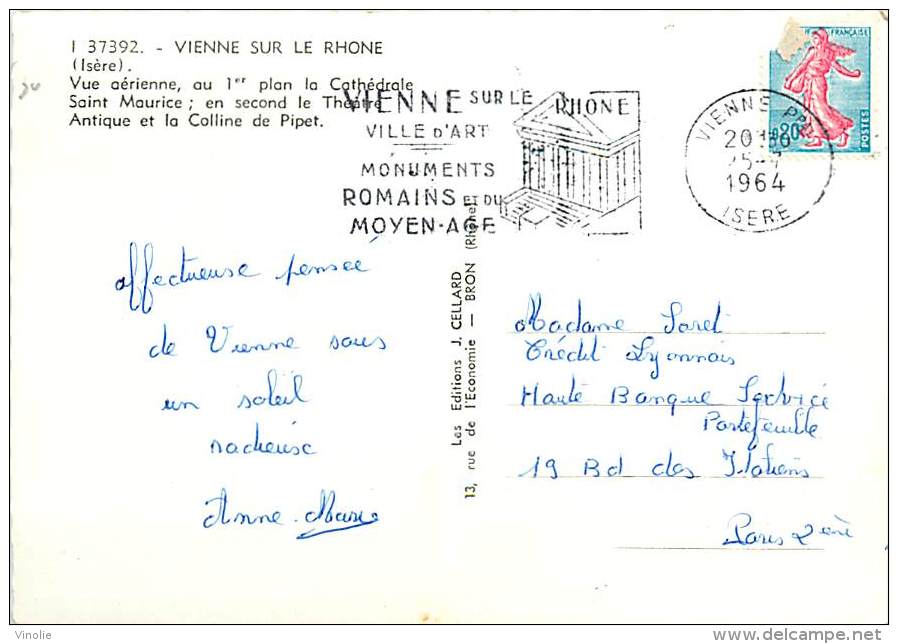 I 37392. - VIENNE SUR LE RHONE
(Isère).
Vue aérienne, au 1er plan la Cathédrale
Saint Maurice ; en second le Théâtre
Antique et la Colline de Pipet.
VIENNE SUR LE RHONE
VILLE D'ART
MONUMENTS
ROMAINS ET DU
MOYEN-AGE
VIENNE PPAL
1964
ISERE
FRANÇAISE
0,20
POSTES
affectueuse pensée
de Vienne sous
un soleil
radieuse
Anne-Marie
Les Editions J. CELLARD
13, rue de l'Economie — BRON (Rhône)
Madame Soret
Crédit Lyonnais
Haute Banque Service
Portefeuille
19 Bd des Italiens
Paris 2ème
Vinolie
www.delcampe.net